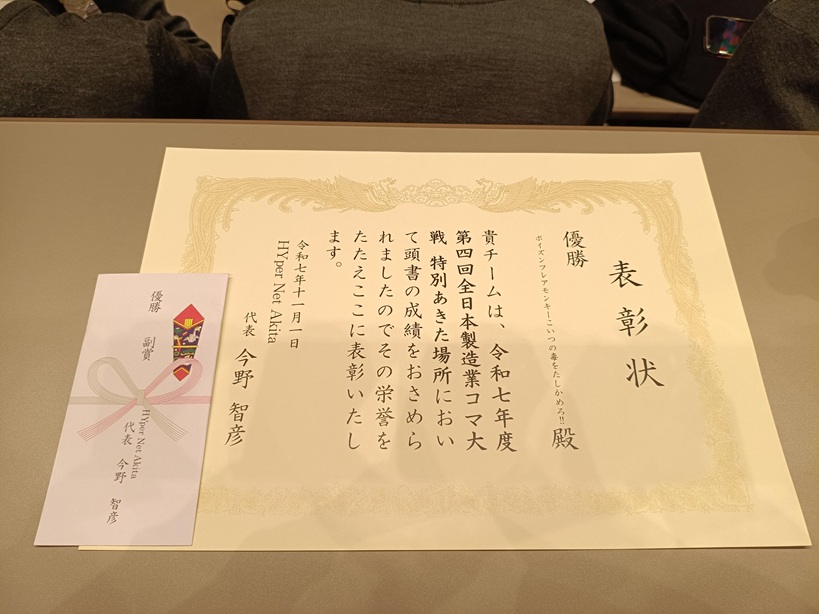 表彰状
優勝
ポイズンフレアモンキーこいつの毒をたしかめろ!! 殿
貴チームは、令和七年度
第四回全日本製造業コマ大
戦 特別あきた場所におい
て頭書の成績をおさめら
れましたのでその栄誉を
たたえここに表彰いたし
ます。
令和七年十一月一日
HYper Net Akita
代表 今野 智彦
優勝 副賞
HYper Net Akita
代表 今野 智彦